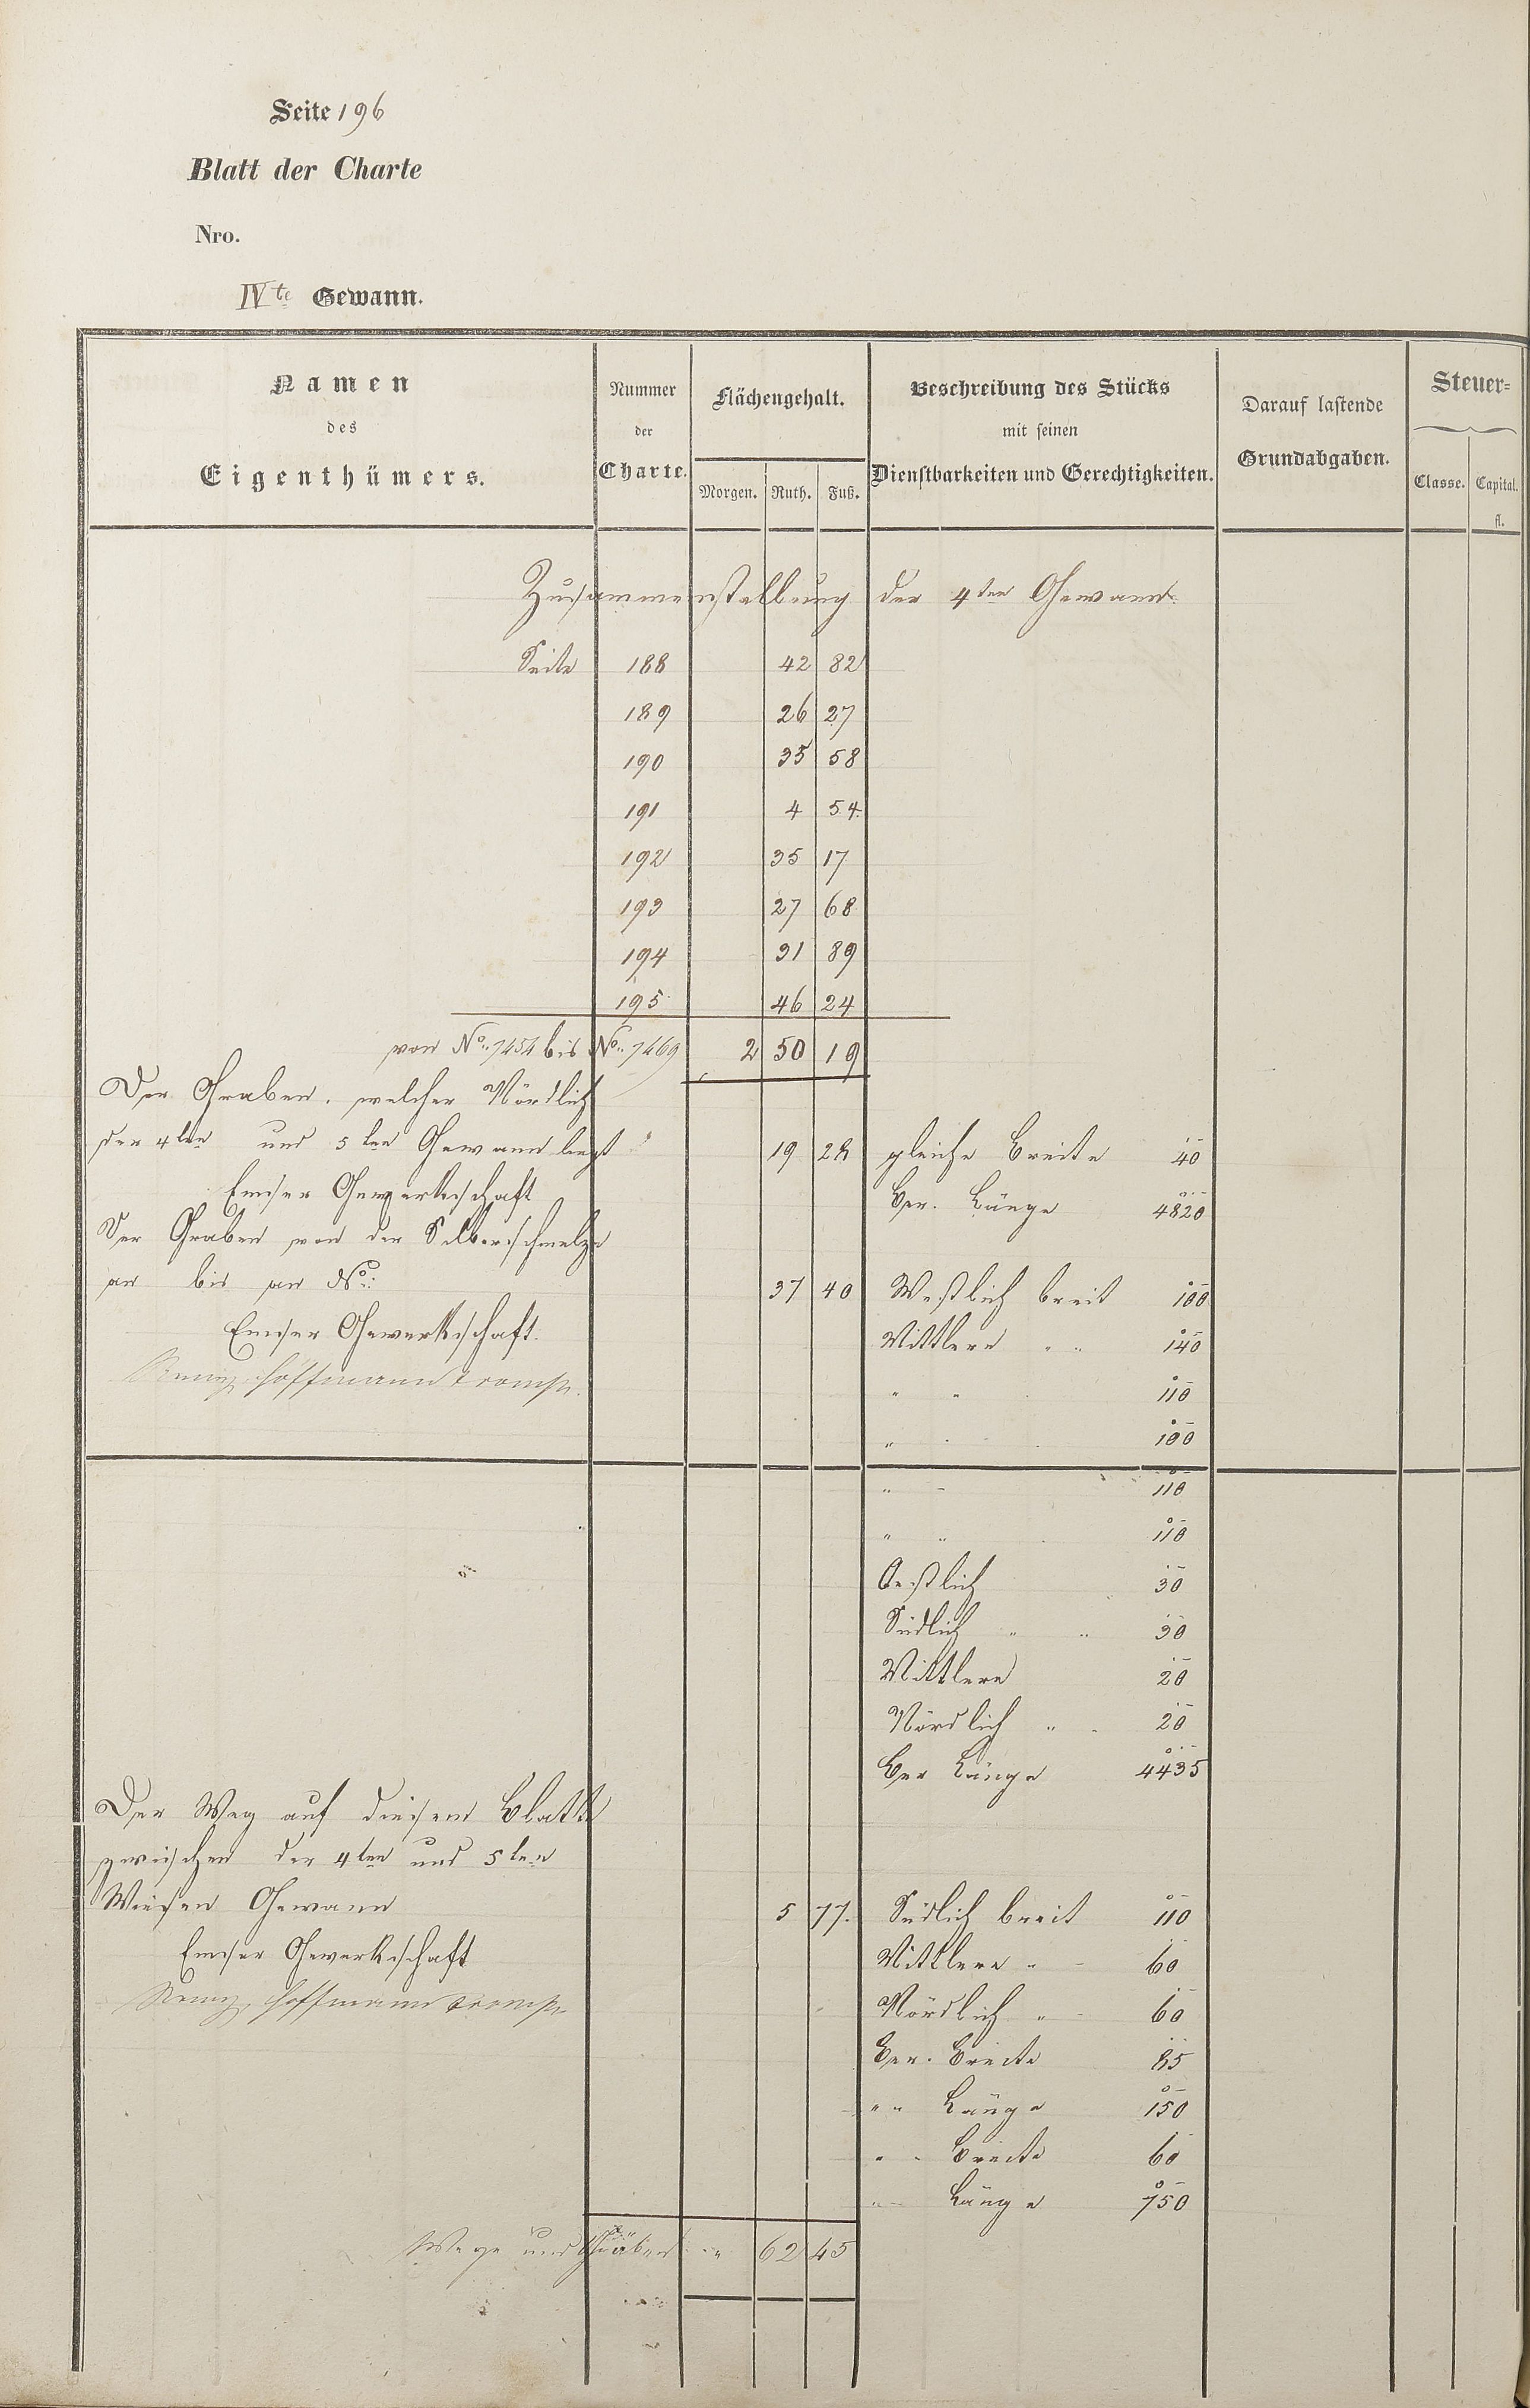 Seite 196
Blatt der Charte
Nro.
IVte Gewann.
Namen
des
Eigenthümers.
Nummer
der
Charte.
Flächengehalt.
Morgen. Ruth. Fuß.
Beschreibung des Stücks
mit seinen
Dienstbarkeiten und Gerechtigkeiten.
Darauf lastende
Grundabgaben.
Steuer=
Classe. Capital.
fl.
Zusammenstellung der 4ten Gewann.
Seite 188 42 82
189 26 27
190 35 58
191 4 54
192 35 17
193 27 68
194 31 89
195 46 24
von No. 7454 bis No. 7469 2 50 19
Der Graben, welcher Nördlich
der 4ten und 5ten Gewann liegt 19 28 gleiche Breite 40
Emser Gewerkschaft Ber. Länge 4820
Der Graben von der Silberschmelze
an bis an No. 37 40 Westlich breit 100
Emser Gewerkschaft. Mittlere " " 140
Remy, Hoffmann & Comp. " " 110
" " 100
" " 110
" " 110
Oestlich 30
Südlich " " 30
Mittlere 20
Nördlich " " 20
Ber Länge 4435
Der Weg auf diesem Blatte
zwischen der 4ten und 5ten
Wiesen Gewann 5 77. Südlich breit 110
Emser Gewerkschaft Mittlere " 60
Remy, Hoffmann & Comp. Nördlich " 60
Ber. Breite 85
" " Länge 150
" " Breite 60
" " Länge 750
Wege und Gräben " 62 45